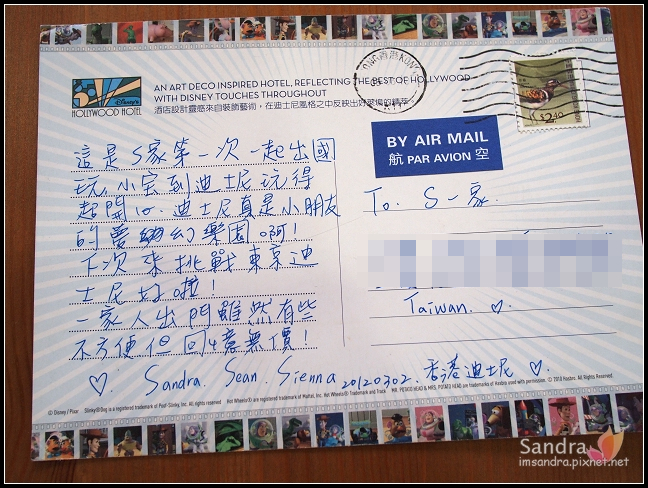 Disney's
HOLLYWOOD HOTEL
AN ART DECO INSPIRED HOTEL, REFLECTING THE BEST OF HOLLYWOOD
WITH DISNEY TOUCHES THROUGHOUT
酒店設計靈感來自裝飾藝術，在迪士尼風格之中反映出好萊塢的精萃
HONG KONG
$2.40
BY AIR MAIL
航 PAR AVION 空
這是S家第一次一起出國
玩，小宝到迪士尼玩得
超開心。迪士尼真是小朋友
的夢幻樂園啊！
下次來挑戰東京迪
士尼好啦！
一家人出門雖然有些
不方便但回憶無價！
♡ Sandra. Sean. Sienna 20120302. 香港迪士尼 ♡
To. S一家.
Taiwan. ♡
© Disney / Pixar
Slinky® Dog is a registered trademark of Poof-Slinky, Inc. All rights reserved
Hot Wheels® are registered trademark of Mattel, Inc. Hot Wheels® Trademark and Track
MR. POTATO HEAD & MRS. POTATO HEAD are trademarks of Hasbro used with permission. © 2010 Hasbro. All Rights Reserved.
Sandra
imsandra.pixnet.net